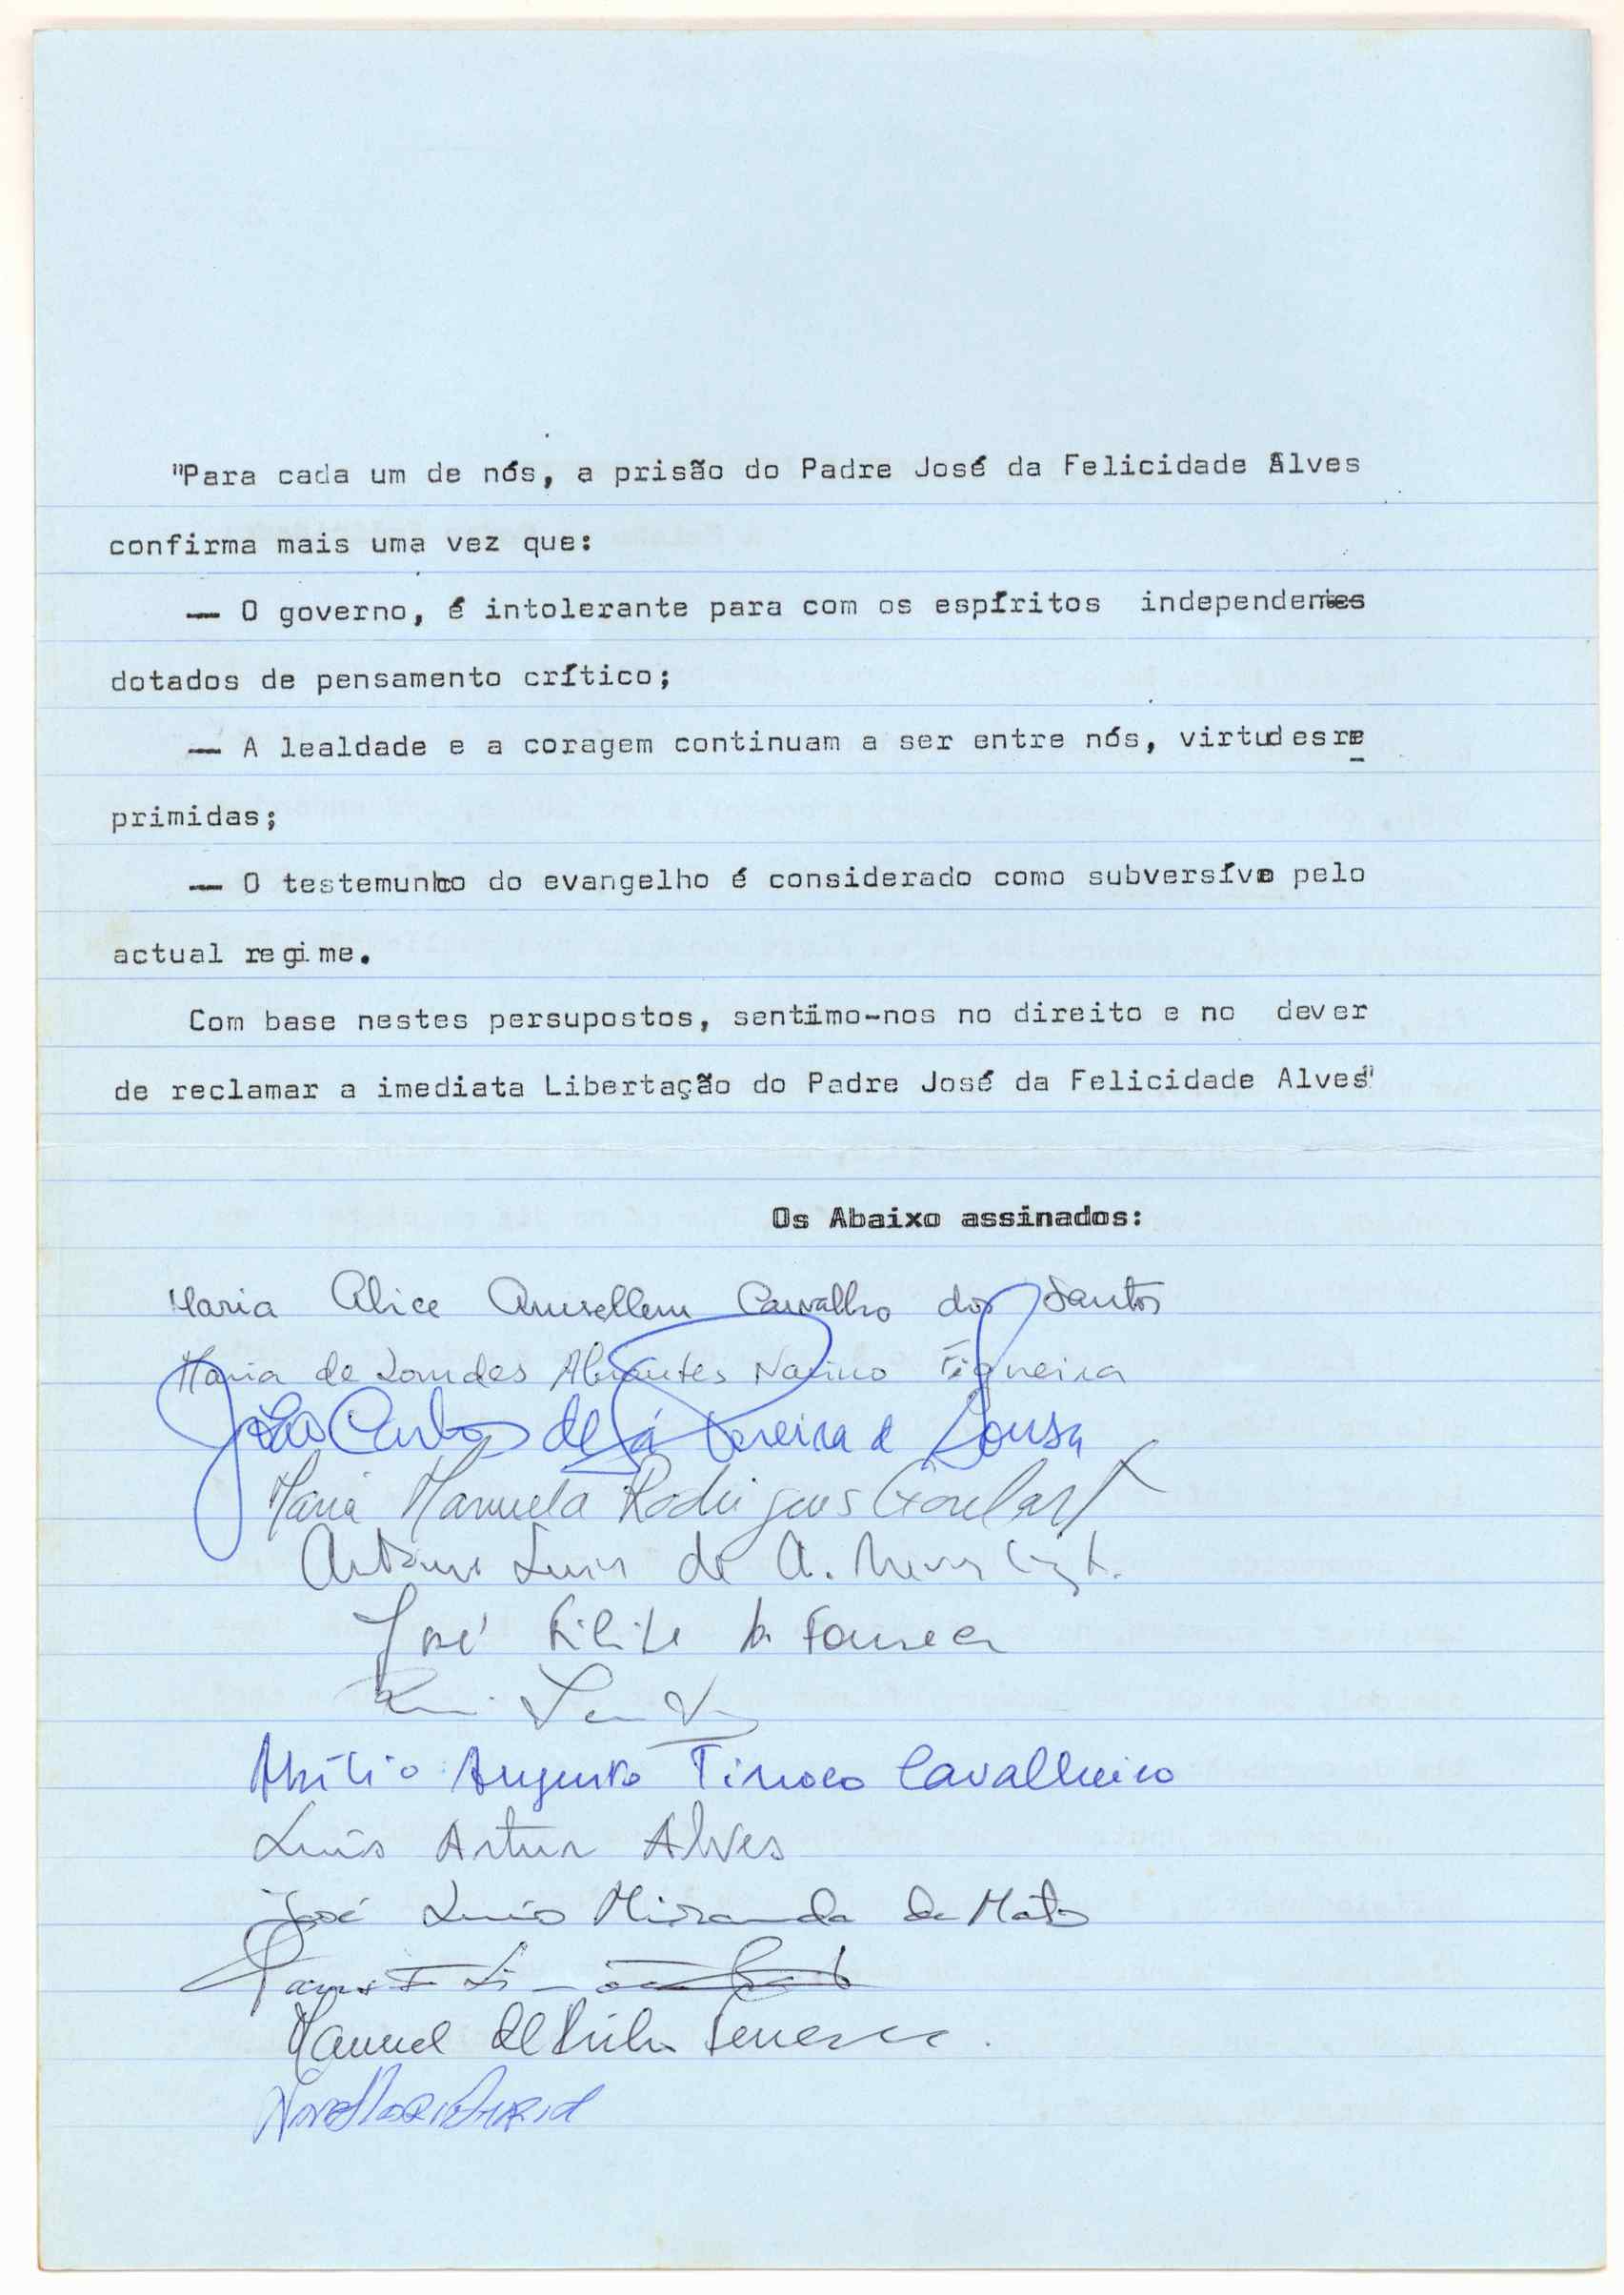 "Para cada um de nós, a prisão do Padre José da Felicidade Alves
confirma mais uma vez que:
— O governo, é intolerante para com os espíritos independentes
dotados de pensamento crítico;
— A lealdade e a coragem continuam a ser entre nós, virtudes re
primidas;
— O testemunho do evangelho é considerado como subversívo pelo
actual regime.
Com base nestes persupostos, sentimo-nos no direito e no dever
de reclamar a imediata Libertação do Padre José da Felicidade Alves"
Os Abaixo assinados:
Maria Alice Amsellem Carvalho dos Santos
Maria de Lourdes Abrantes Narino Figueira
João Carlos de Sá Pereira e Sousa
Maria Manuela Rodrigues Goulart
António Luis de A.
José Filipe da Fonseca
Abílio Augusto Tinoco Cavalheiro
Luís Artur Alves
José Luís Miranda da Mata
Manuel